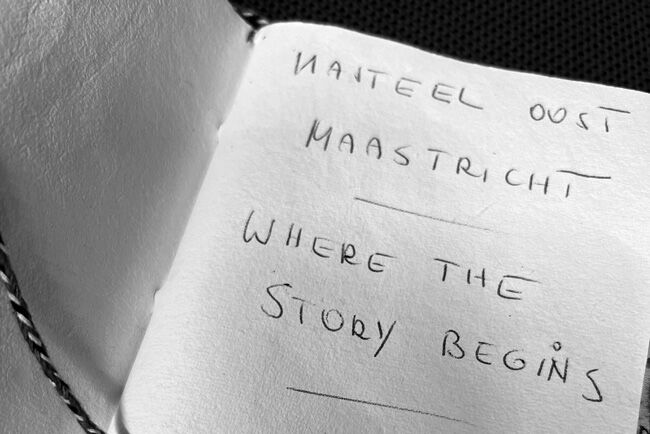 KASTEEL OOST
MAASTRICHT
WHERE THE
STORY BEGINS